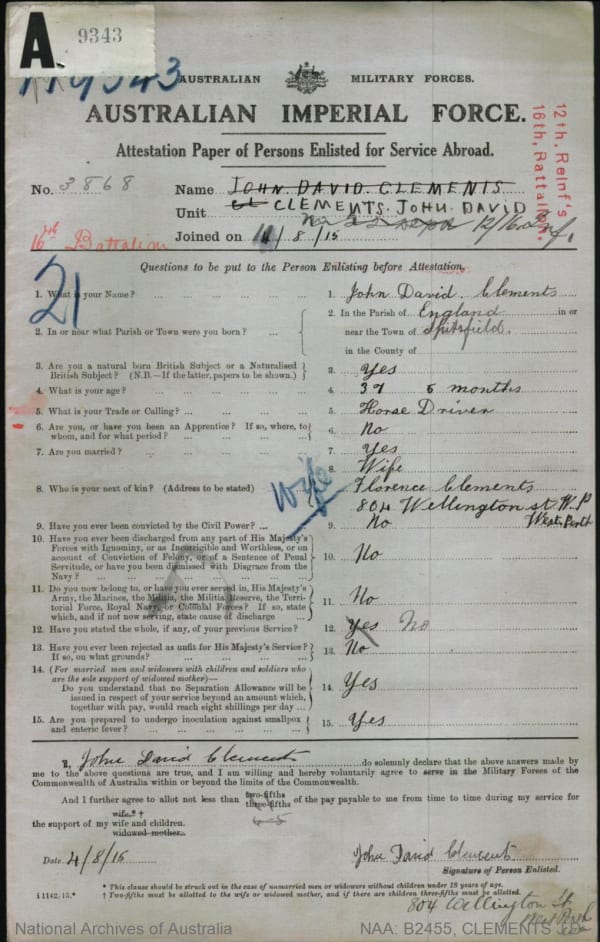 A. 9343
AUSTRALIAN MILITARY FORCES.
AUSTRALIAN IMPERIAL FORCE.
Attestation Paper of Persons Enlisted for Service Abroad.
12th, Reinf's
16th, Battalion.
No. 3868 Name JOHN DAVID CLEMENTS
Unit CLEMENTS. JOHN. DAVID
Joined on 4/8/15
16th Battalion
21
Questions to be put to the Person Enlisting before Attestation.
1. What is your Name? ... 1. John David Clements
2. In or near what Parish or Town were you born? ... 2. In the Parish of England in or
near the Town of
in the County of
3. Are you a natural born British Subject or a Naturalised British Subject? (N.B.—If the latter, papers to be shown.) 3. Yes
4. What is your age? ... 4. 37 5 months
5. What is your Trade or Calling? ... 5. Horse Driver
6. Are you, or have you been an Apprentice? If so, where, to whom, and for what period? ... 6. No
7. Are you married? ... 7. Yes
8. Wife
8. Who is your next of kin? (Address to be stated) wife Florence Clements
804 Wellington st W.P
West Perth
9. Have you ever been convicted by the Civil Power? ... 9. No
10. Have you ever been discharged from any part of His Majesty's
Forces with Ignominy, or as Incorrigible and Worthless, or on
account of Conviction of Felony, or of a Sentence of Penal
Servitude, or have you been dismissed with Disgrace from the
Navy? ... 10. No
11. Do you now belong to, or have you ever served in, His Majesty's
Army, the Marines, the Militia, the Militia Reserve, the Terri-
torial Force, Royal Navy, or Colonial Forces? If so, state
which, and if not now serving, state cause of discharge ... 11. No
12. Have you stated the whole, if any, of your previous Service? 12. Yes No
13. Have you ever been rejected as unfit for His Majesty's Service?
If so, on what grounds? ... 13. No
14. (For married men and widowers with children and soldiers who
are the sole support of widowed mother)—
Do you understand that no Separation Allowance will be
issued in respect of your service beyond an amount which,
together with pay, would reach eight shillings per day ... 14. Yes
15. Are you prepared to undergo inoculation against smallpox
and enteric fever? ... 15. Yes
I, John David Clements do solemnly declare that the above answers made by
me to the above questions are true, and I am willing and hereby voluntarily agree to serve in the Military Forces of the
Commonwealth of Australia within or beyond the limits of the Commonwealth.
And I further agree to allot not less than two-fifths three-fifths of the pay payable to me from time to time during my service for
wife.* †
the support of my wife and children.
widowed mother.
Date 4/8/15 John David Clements
Signature of Person Enlisted.
* This clause should be struck out in the case of unmarried men or widowers without children under 18 years of age.
† Two-fifths must be allotted to the wife or widowed mother, and if there are children three-fifths must be allotted.
§ 1142. 15.*
804 Wellington St
West Perth
National Archives of Australia NAA: B2455, CLEMENTS